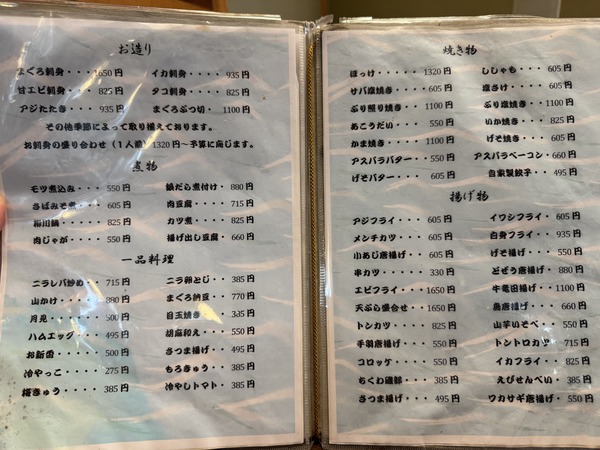 お造り
まぐろ刺身・・・1650円 イカ刺身・・・・935円
甘エビ刺身・・・825円 タコ刺身・・・・825円
アジたたき・・・935円 まぐろぶつ切・・1100円
その他季節によって取り揃えております。
お刺身の盛り合わせ（1人前）1320円～予算に応じます。
煮物
モツ煮込み・・・550円 銀だら煮付け・880円
さばみそ煮・・・605円 肉豆腐・・・・715円
柳川鍋・・・・・825円 カツ煮・・・・825円
肉じゃが・・・・550円 揚げ出し豆腐・660円
一品料理
ニラレバ炒め・・・715円 ニラ卵とじ・・385円
山かけ・・・・・880円 まぐろ納豆・・770円
月見・・・・・・500円 目玉焼き・・・335円
ハムエッグ・・・495円 胡麻和え・・・550円
お新香・・・・・500円 さつま揚げ・・495円
冷やっこ・・・・275円 もろきゅう・・385円
梅きゅう・・・・385円 冷やしトマト・385円
焼き物
ほっけ・・・・・1320円 ししゃも・・・605円
サバ塩焼き・・・605円 塩さけ・・・・605円
ぶり照り焼き・・1100円 ぶり塩焼き・・1100円
あこうだい・・・550円 いか焼き・・・825円
かま焼き・・・・1100円 げそ焼き・・・605円
アスパラバター・・550円 アスパラベーコン・660円
げそバター・・・550円 自家製餃子・・495円
揚げ物
アジフライ・・・605円 イワシフライ・605円
メンチカツ・・・605円 白身フライ・・935円
小あじ唐揚げ・・605円 げそ唐揚げ・・550円
串カツ・・・・・330円 どぜう唐揚げ・880円
エビフライ・・・1650円 牛竜田揚げ・・1100円
天ぷら盛合せ・・1650円 鳥唐揚げ・・・660円
トンカツ・・・・825円 山芋いそべ・・550円
手羽唐揚げ・・・550円 トントロカツ・715円
コロッケ・・・・550円 イカフライ・・825円
ちくわ磯辺・・・385円 えびせんべい・385円
さつま揚げ・・・495円 ワカサギ唐揚げ・550円